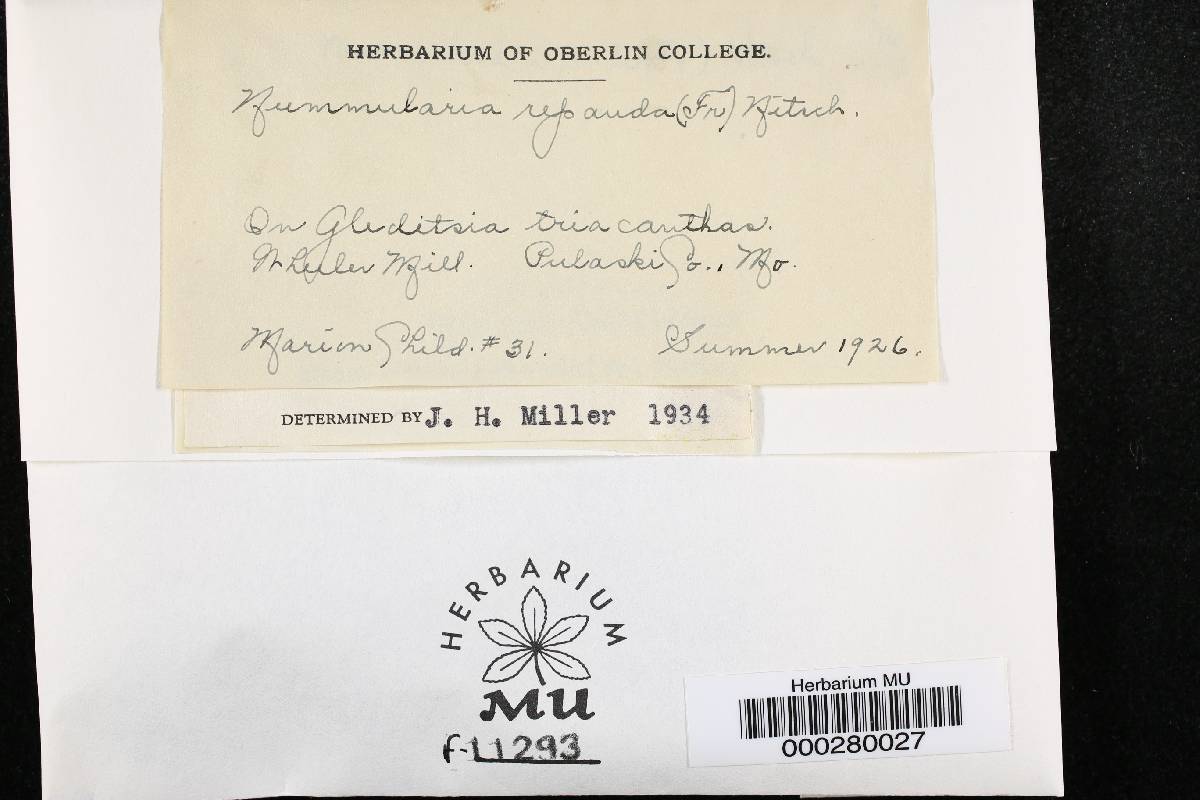 HERBARIUM OF OBERLIN COLLEGE.
Nummularia repanda (Fr) Nitsch.
On Gleditsia triacanthas.
Wheeler Mill. Pulaski Co., Mo.
Marion Child. #31. Summer 1926.
DETERMINED BY J. H. Miller 1934
HERBARIUM
MU
f-11293
Herbarium MU
000280027